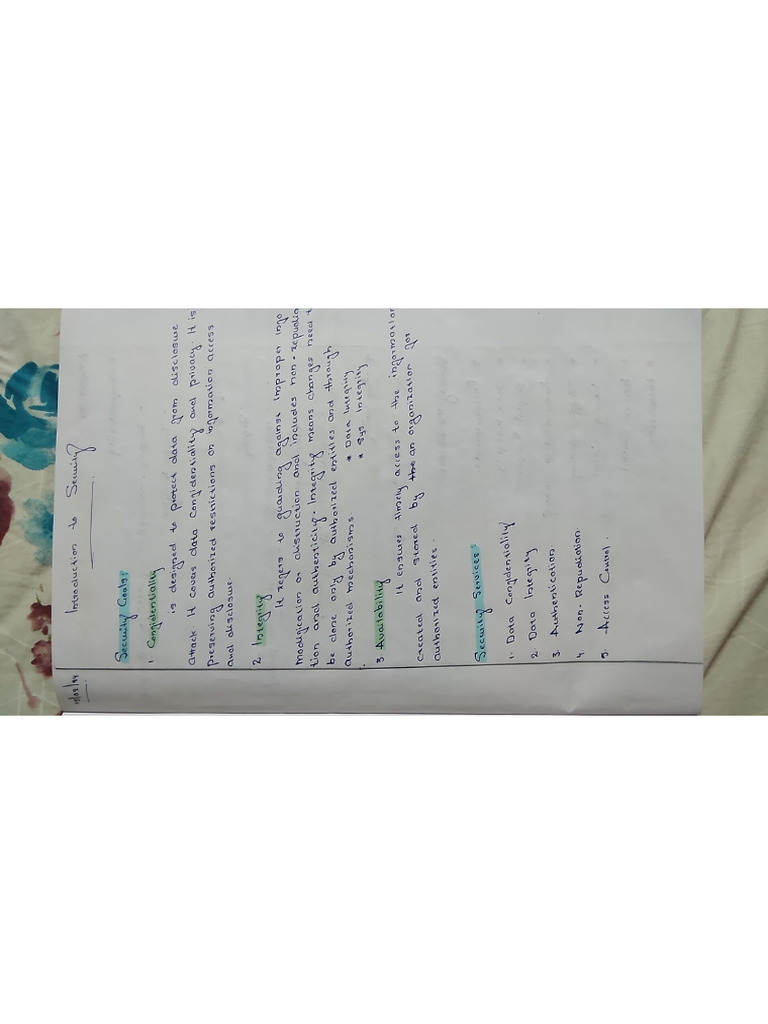 Introduction to Security
Security Goals:
1. Confidentiality
is designed to protect data from disclosure
attack. It covers data confidentiality and privacy. It is
preserving authorized restrictions on information access
and disclosure.
2 Integrity
It refers to guarding against impropr info
modification or abstruction and includes non-repudia
tion and authenticity. Integrity means changes need t
be done only by authorized entities and through
authorized mechanisms. * Data Integrity
* Sys Integrity
3 Availability
It ensures timely access to the information
created and stored by the an organization for
authorized entities.
Security Services:
1. Data Confidentiality
2 Data Integrity
3. Authentication
4 Non-Repudiation
5. Access Control.